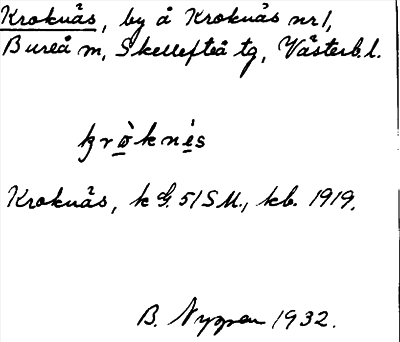 Kroknäs, by å Kroknäs nr 1,
Bureå m, Skellefteå tg, Västerb. l.
kròknés
Kroknäs, k G. 51 SM., kb. 1919.
B. Nyman 1932.